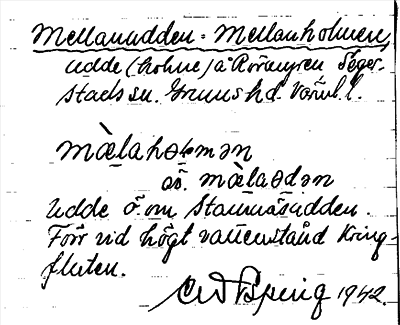 Mellanudden = Mellanholmen,
udde (holme) å Rörängen Seger-
stads sn. Grums hd. Värml. l.
mæ̀laho̭ɫmən
os. mæ̀laədən
Udde ö. om Stammäsudden.
Förr vid högt vattenstånd kring-
fluten.
1942.